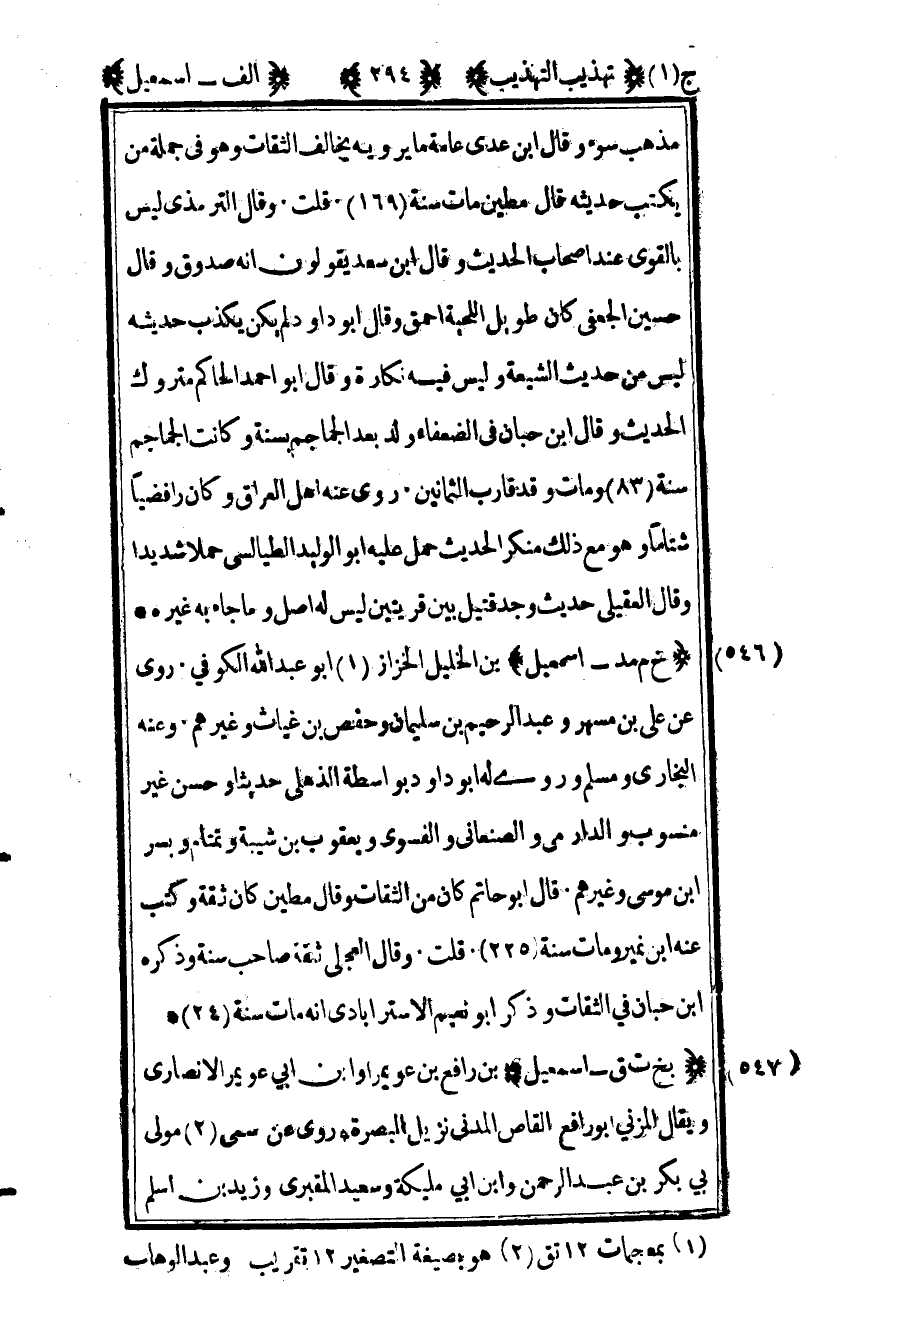 ج(١) ﴿ تهذيب التهذيب ﴾ ﴿ ٢٩٤ ﴾ ﴿ الف ـ اسمعيل ﴾
مذهب سوء وقال ابن عدى عامة ما يرويه يخالف الثقات وهو فى جملة من
يكتب حديثه قال مطين مات سنة (١٦٩)٠ قلت ٠ وقال الترمذى ليس
بالقوى عند اصحاب الحديث وقال ابن سعد يقولون انه صدوق وقال
حسين الجعفى كان طويل اللحية احمق وقال ابو داود لم يكن يكذب حديثه
ليس من حديث الشيعة وليس فيه نكارة وقال ابو احمد الحاكم متروك
الحديث وقال ابن حبان فى الضعفاء ولد بعد الجماجم بسنة وكانت الجماجم
سنة (٨٣) ومات وقد قارب الثمانين ٠ روى عنه اهل العراق وكان رافضياً
شتاماً وهو مع ذلك منكر الحديث حمل عليه ابو الوليد الطيالسى حملا شديدا
وقال العقيلى حديث وجد قتيل بين قريتين ليس له اصل وما جاء به غيره ٠
(٥٤٦) ﴿ خ م مد ـ اسمعيل ﴾ بن الخليل الخزاز (١) ابو عبد الله الكوفي ٠ روى
عن على بن مسهر وعبد الرحيم بن سليمان وحفص بن غياث وغيرهم ٠ وعنه
البخارى ومسلم وروى له ابو داود بواسطة الذهلى حديثا وحسن غير
منسوب والدارمى والصنعانى والفسوى ويعقوب بن شيبة وتمتام وبسر
ابن موسى وغيرهم ٠ قال ابو حاتم كان من الثقات وقال مطين كان ثقة وكتب
عنه ابن نمير ومات سنة (٢٢٥)٠ قلت ٠ وقال العجلى ثقة صاحب سنة وذكره
ابن حبان في الثقات وذكر ابو نعيم الاستراباذى انه مات سنة (٢٤)٠
(٥٤٧) ﴿ بخ ت ق ـ اسمعيل ﴾ بن رافع بن عويمر او ابن ابي عويمر الانصارى
ويقال المزني ابو رافع القاص المدنى نزيل البصرة ٠ روى عن سمى (٢) مولى
بي بكر بن عبد الرحمن وابن ابي مليكة وسعيد المقبرى وزيد بن اسلم
(١) بمعجمات ١٢ تق (٢) هو بصيغة التصغير ١٢ تقريب وعبد الوهاب